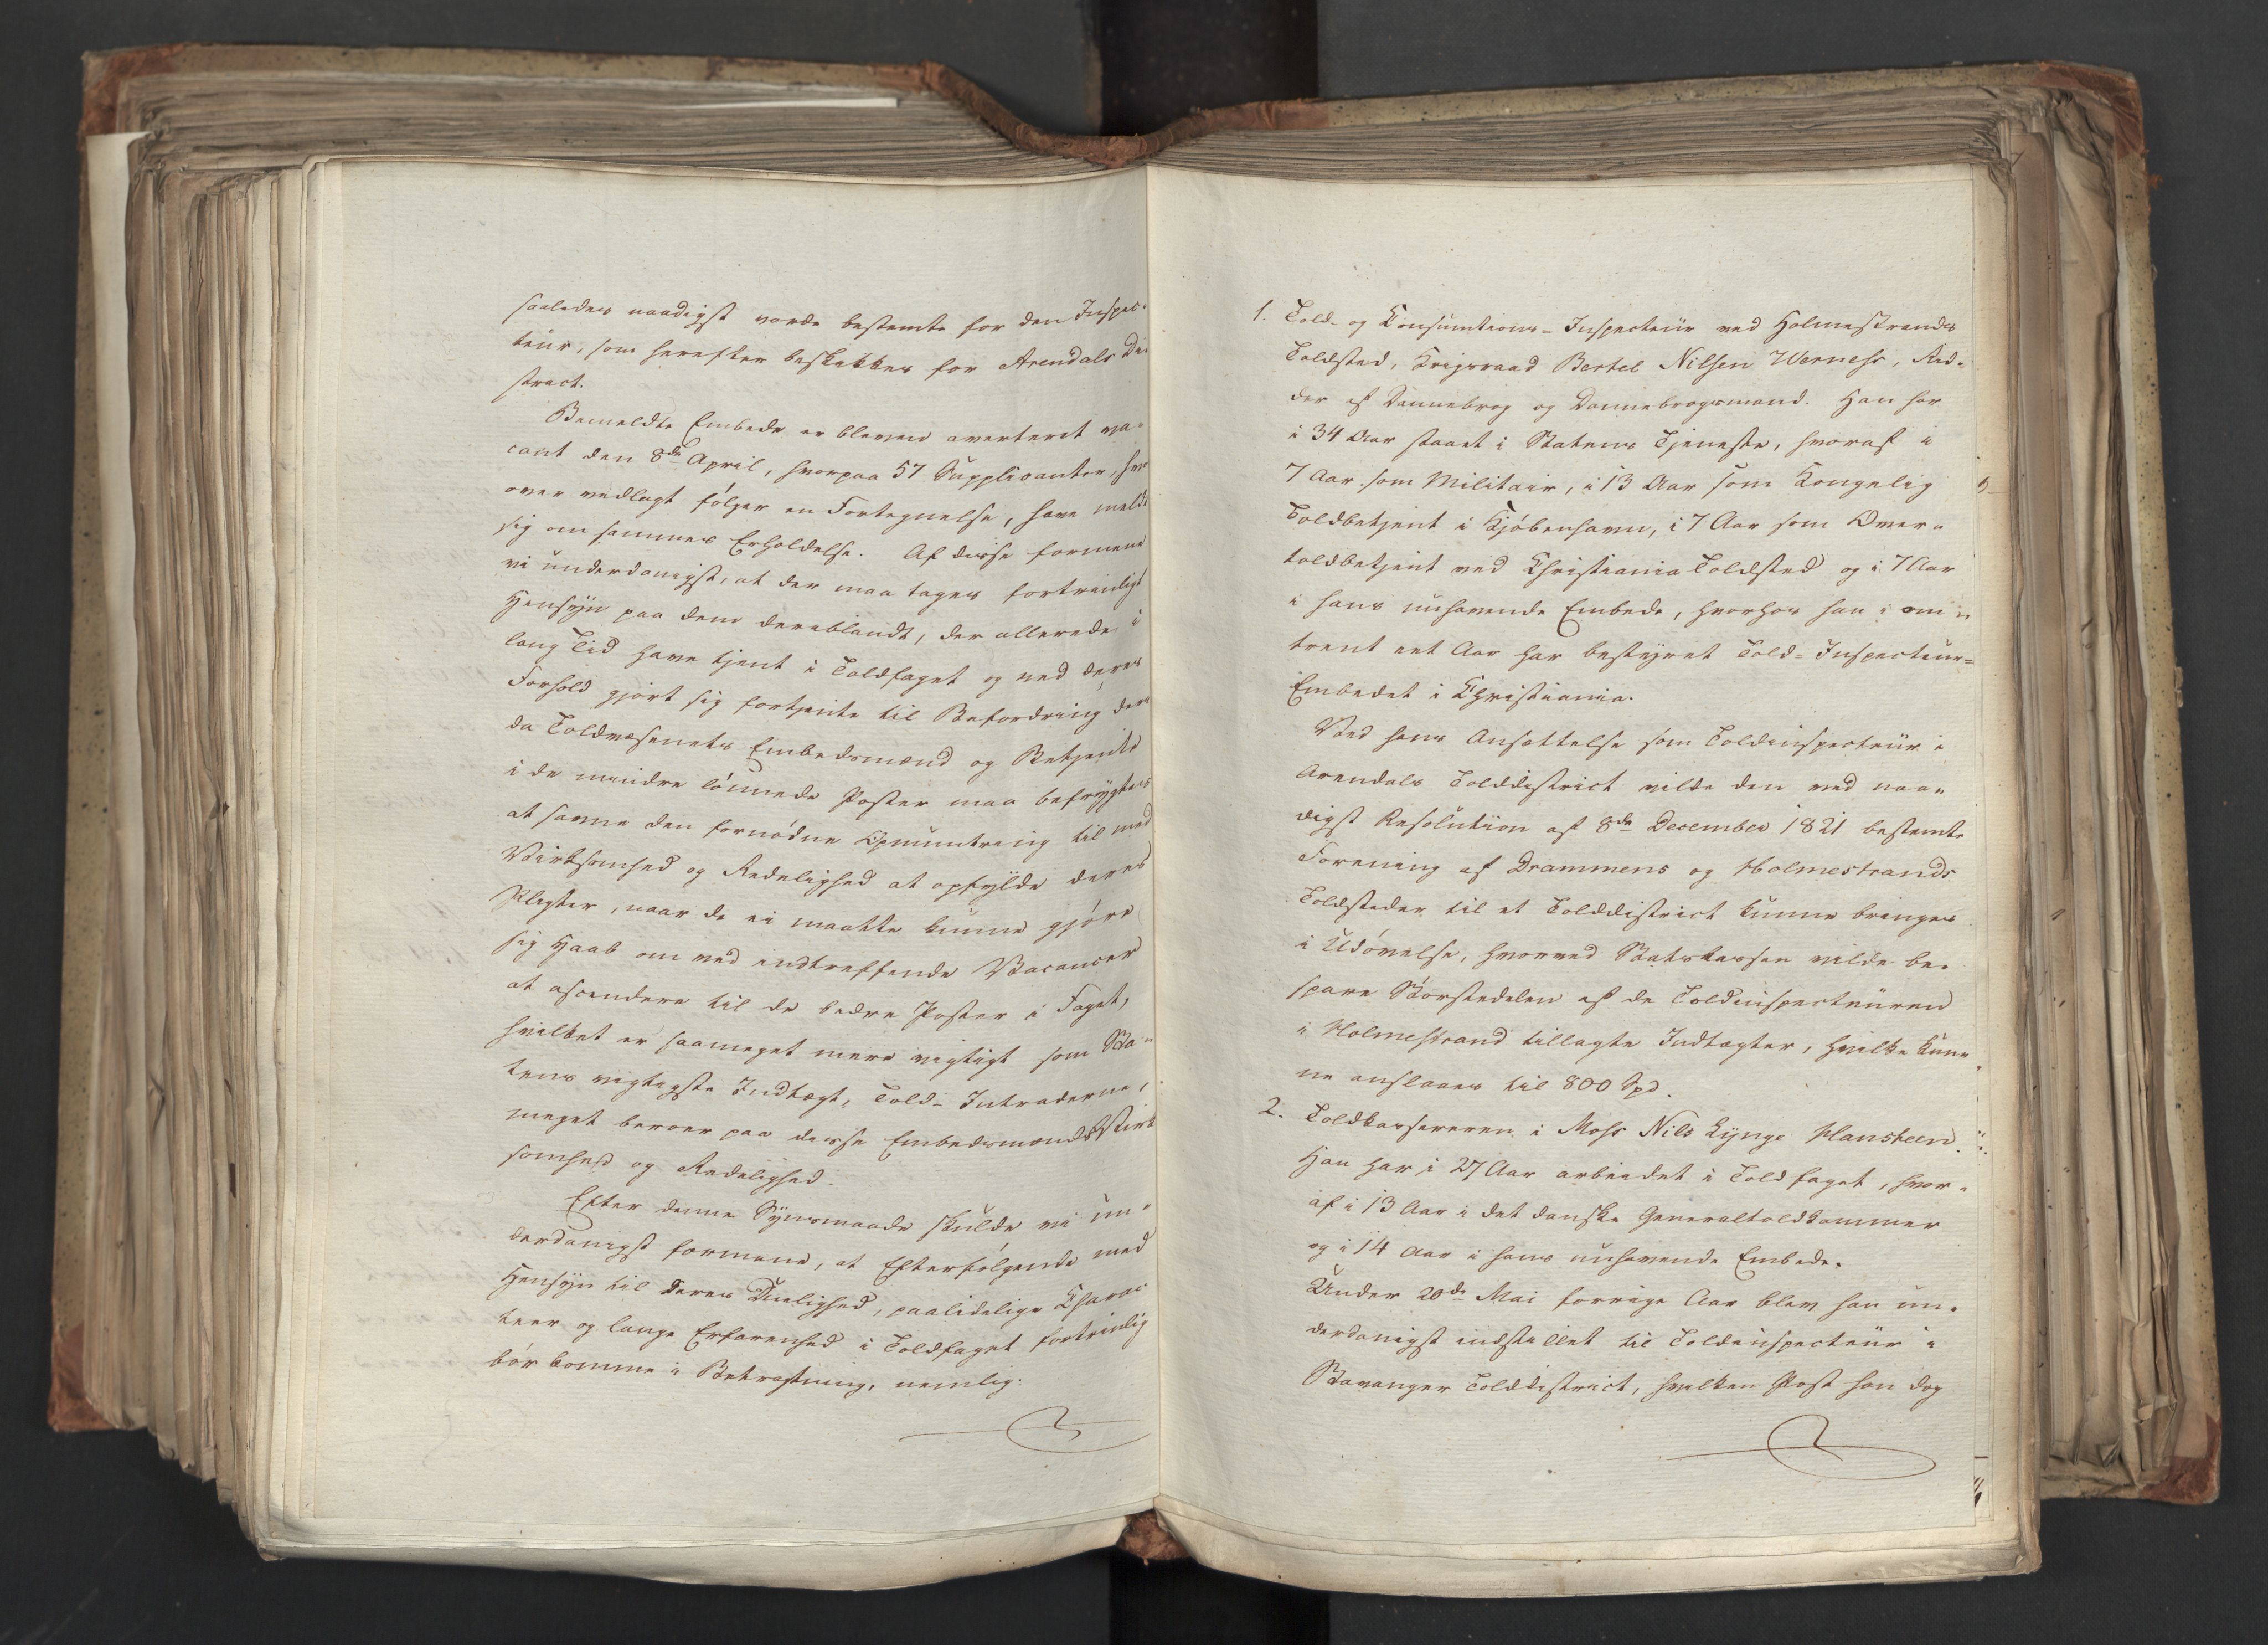 saaledes naadigst vorde bestemte for den Inspec-
teur, som herefter beskikkes for Arendals Di-
strict.
Bemeldte Embede er bleven averteret va-
cant den 8de April, hvorpaa 57 Supplicanter, hvor-
over vedlagt følger en Fortegnelse, have meldt
sig om sammes Erholdelse. Af disse formene
vi underdanigst, at der maa tages fortrinligt
Hensyn paa dem deriblandt, der allerede i
lang Tid have tjent i Toldfaget og ved deres
Forhold gjort sig fortjente til Befordring der-
da Toldvæsenets Embedsmænd og Betjente
i de mindre lønnede Poster maa befrygtes
at savne den fornødne Opmuntring til med
Virksomhed og Redelighed at opfylde deres
Pligter, naar de ei maatte kunne gjøre
sig Haab om ved indtreffende Vacancer
at ascendere til de bedre Poster i Faget,
hvilket er saameget mere vigtigt som Sta-
tens vigtigste Indtægt, Told-Intraderne,
meget beroer paa disse Embedsmænds Virk
somhed og Redelighed.
Efter denne Synsmaade skulde vi un-
derdanigst formene, at Efterfølgende med
Hensyn til deres Duelighed, paalidelige Charac
teer og lange Erfarenhed i Toldfaget fortrinlig
bør komme i Betragtning, nemlig:
1. Told- og Consumtions-Inspecteur ved Holmestrands
Toldsted, Krigsraad Bertel Nilsen Werness, Rid-
der af Dannebrog og Dannebrogsmand. Han har
i 34 Aar staaet i Statens Tjeneste, hvoraf i
7 Aar som Militair, i 13 Aar som Kongelig
Toldbetjent i Kjøbenhavn, i 7 Aar som Over-
toldbetjent ved Christiania Toldsted og i 7 Aar
i hans nuhavende Embede, hvorhos han i om-
trent eet Aar har bestyret Told-Inspecteur-
Embedet i Christiania.
Ved hans Ansættelse som Toldinspecteur i
Arendals Tolddistrict vilde den ved naa-
digst Resolution af 8de December 1821 bestemte
Forening af Drammens og Holmestrands
Toldsteder til et Tolddistrict kunne bringes
i Udøvelse, hvorved Statskassen vilde be-
spare Størstedelen af de Toldinspecteuren
i Holmestrand tillagte Indtægter, hvilke kun-
ne anslaaes til 800 Spd.
2. Toldkassereren i Moss Nils Lynge Hansteen.
Han har i 27 Aar arbeidet i Toldfaget, hvor-
af i 13 Aar i det danske Generaltoldkammer
og i 14 Aar i hans nuhavende Embede.
Under 20de Mai forrige Aar blev han un-
derdanigst indstillet til Toldinspecteur i
Stavanger Tolddistrict, hvilken Post han dog